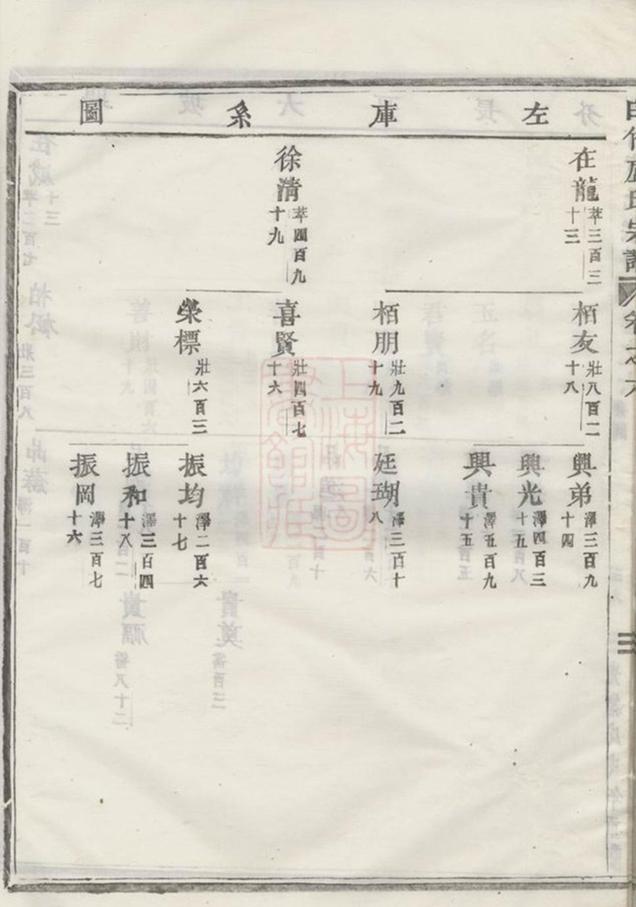 左庫系圖
在龍
萃三百三
十三
徐清
萃四百九
十九
栢友
壯八百二
十八
栢朋
壯九百二
十九
喜賢
壯四百七
十六
榮標
壯六百三
興弟
澤三百九
十四
興光
澤四百三
十五
興貴
澤五百九
十五
廷瑚
澤三百十
八
振均
澤二百六
十七
振和
澤三百四
十八
振岡
澤三百七
十六
三